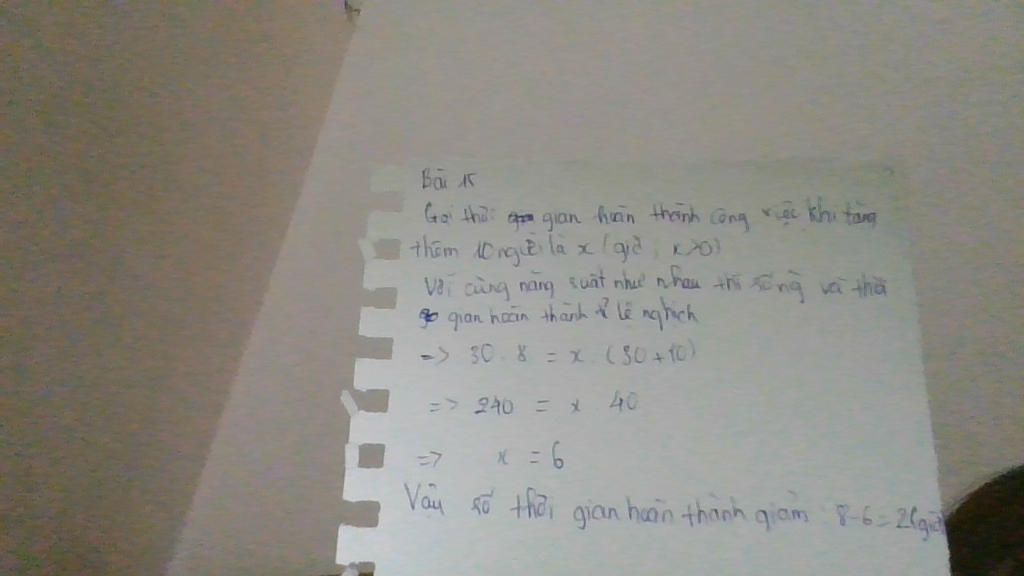 Bài 15
Gọi thời gian hoàn thành công việc khi tăng
thêm 10 người là x (giờ, x>0)
Với cùng năng suất như nhau thì số ng và thời
gian hoàn thành tỉ lệ nghịch
=> 30 . 8 = x . (30+10)
=> 240 = x 40
=> x = 6
Vậy số thời gian hoàn thành giảm 8-6=2(giờ)